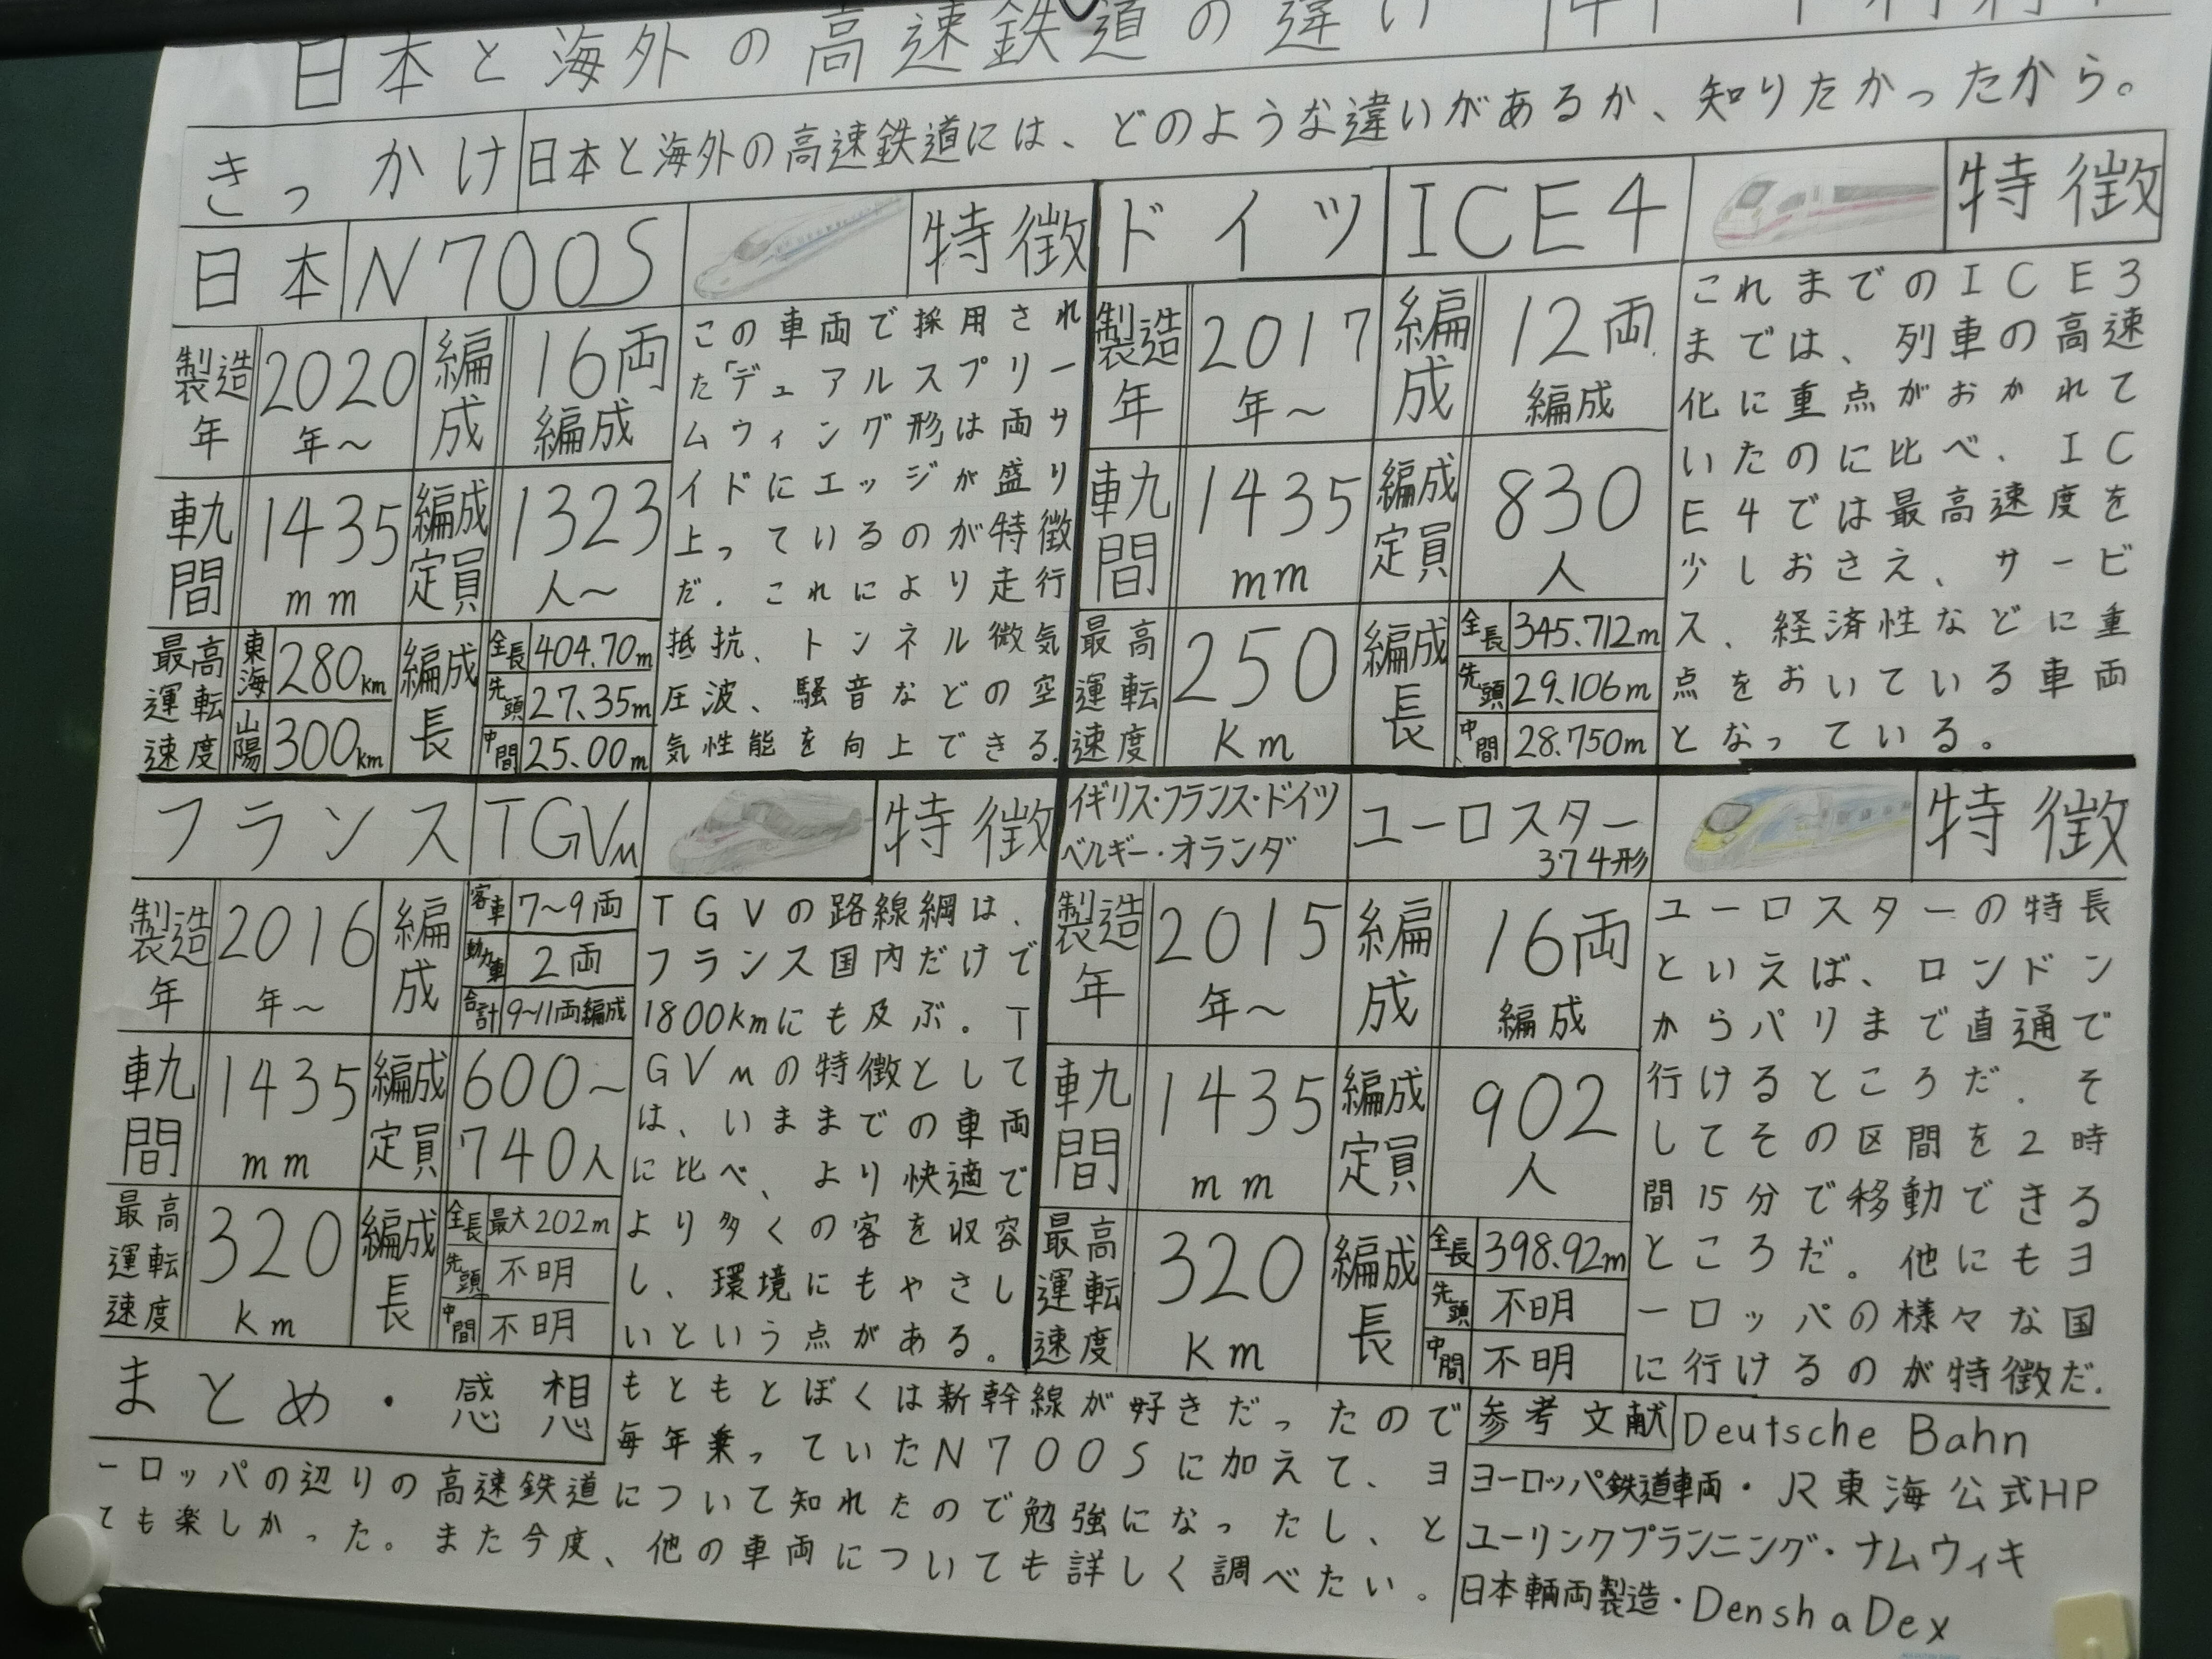 日本と海外の高速鉄道の違い
きっかけ
日本と海外の高速鉄道には、どのような違いがあるか、知りたかったから。
日本
N700S
特徴
製造年
2020年～
編成
16両編成
軌間
1435mm
編成定員
1323人～
最高運転速度
東海
280km
山陽
300km
編成長
全長
404.70m
先頭
27.35m
中間
25.00m
この車両で採用され
た「デュアルスプリー
ムウィング形」は両サ
イドにエッジが盛り
上っているのが特徴
だ．これにより走行
抵抗、トンネル微気
圧波、騒音などの空
気性能を向上できる.
ドイツ
ICE4
特徴
製造年
2017年～
編成
12両編成
軌間
1435mm
編成定員
830人
最高運転速度
250Km
編成長
全長
345.712m
先頭
29.106m
中間
28.750m
これまでのICE3
までは、列車の高速
化に重点がおかれて
いたのに比べ、IC
E4では最高速度を
少しおさえ、サービ
ス、経済性などに重
点をおいている車両
となっている。
フランス
TGVM
特徴
製造年
2016年～
編成
客車
7～9両
動力車
2両
合計
9～11両編成
軌間
1435mm
編成定員
600～740人
最高運転速度
320Km
編成長
全長
最大202m
先頭
不明
中間
不明
TGVの路線網は、
フランス国内だけで
1800kmにも及ぶ．T
GVMの特徴として
は、いままでの車両
に比べ、より快適で
より多くの客を収容
し、環境にもやさし
いという点がある。
イギリス・フランス・ドイツ
ベルギー・オランダ
ユーロスター
374形
特徴
製造年
2015年～
編成
16両編成
軌間
1435mm
編成定員
902人
最高運転速度
320Km
編成長
全長
398.92m
先頭
不明
中間
不明
ユーロスターの特長
といえば、ロンドン
からパリまで直通で
行けるところだ．そ
してその区間を2時
間15分で移動できる
ところだ。他にもヨ
ーロッパの様々な国
に行けるのが特徴だ.
まとめ・感想
もともとぼくは新幹線が好きだったので
毎年乗っていたN700Sに加えて、ヨ
ーロッパの辺りの高速鉄道について知れたので勉強になったし、と
ても楽しかった。また今度、他の車両についても詳しく調べたい。
参考文献
Deutsche Bahn
ヨーロッパ鉄道車両・JR東海公式HP
ユーリンクプランニング・ナムウィキ
日本輌両製造・DenshaDex